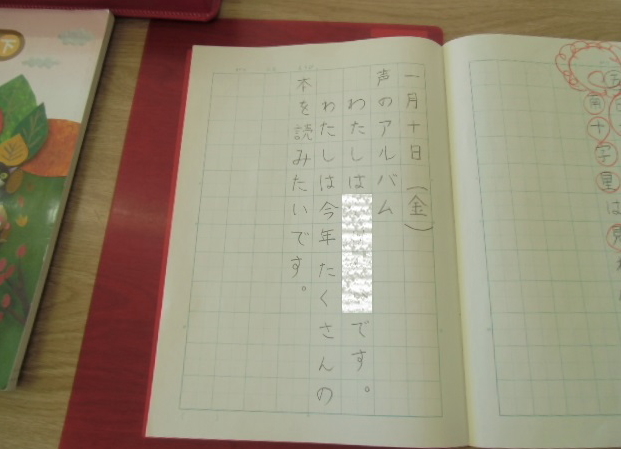 一月十日（金）
声のアルバム
わたしは です。
わたしは今年たくさんの
本を読みたいです。
南十字星は
下